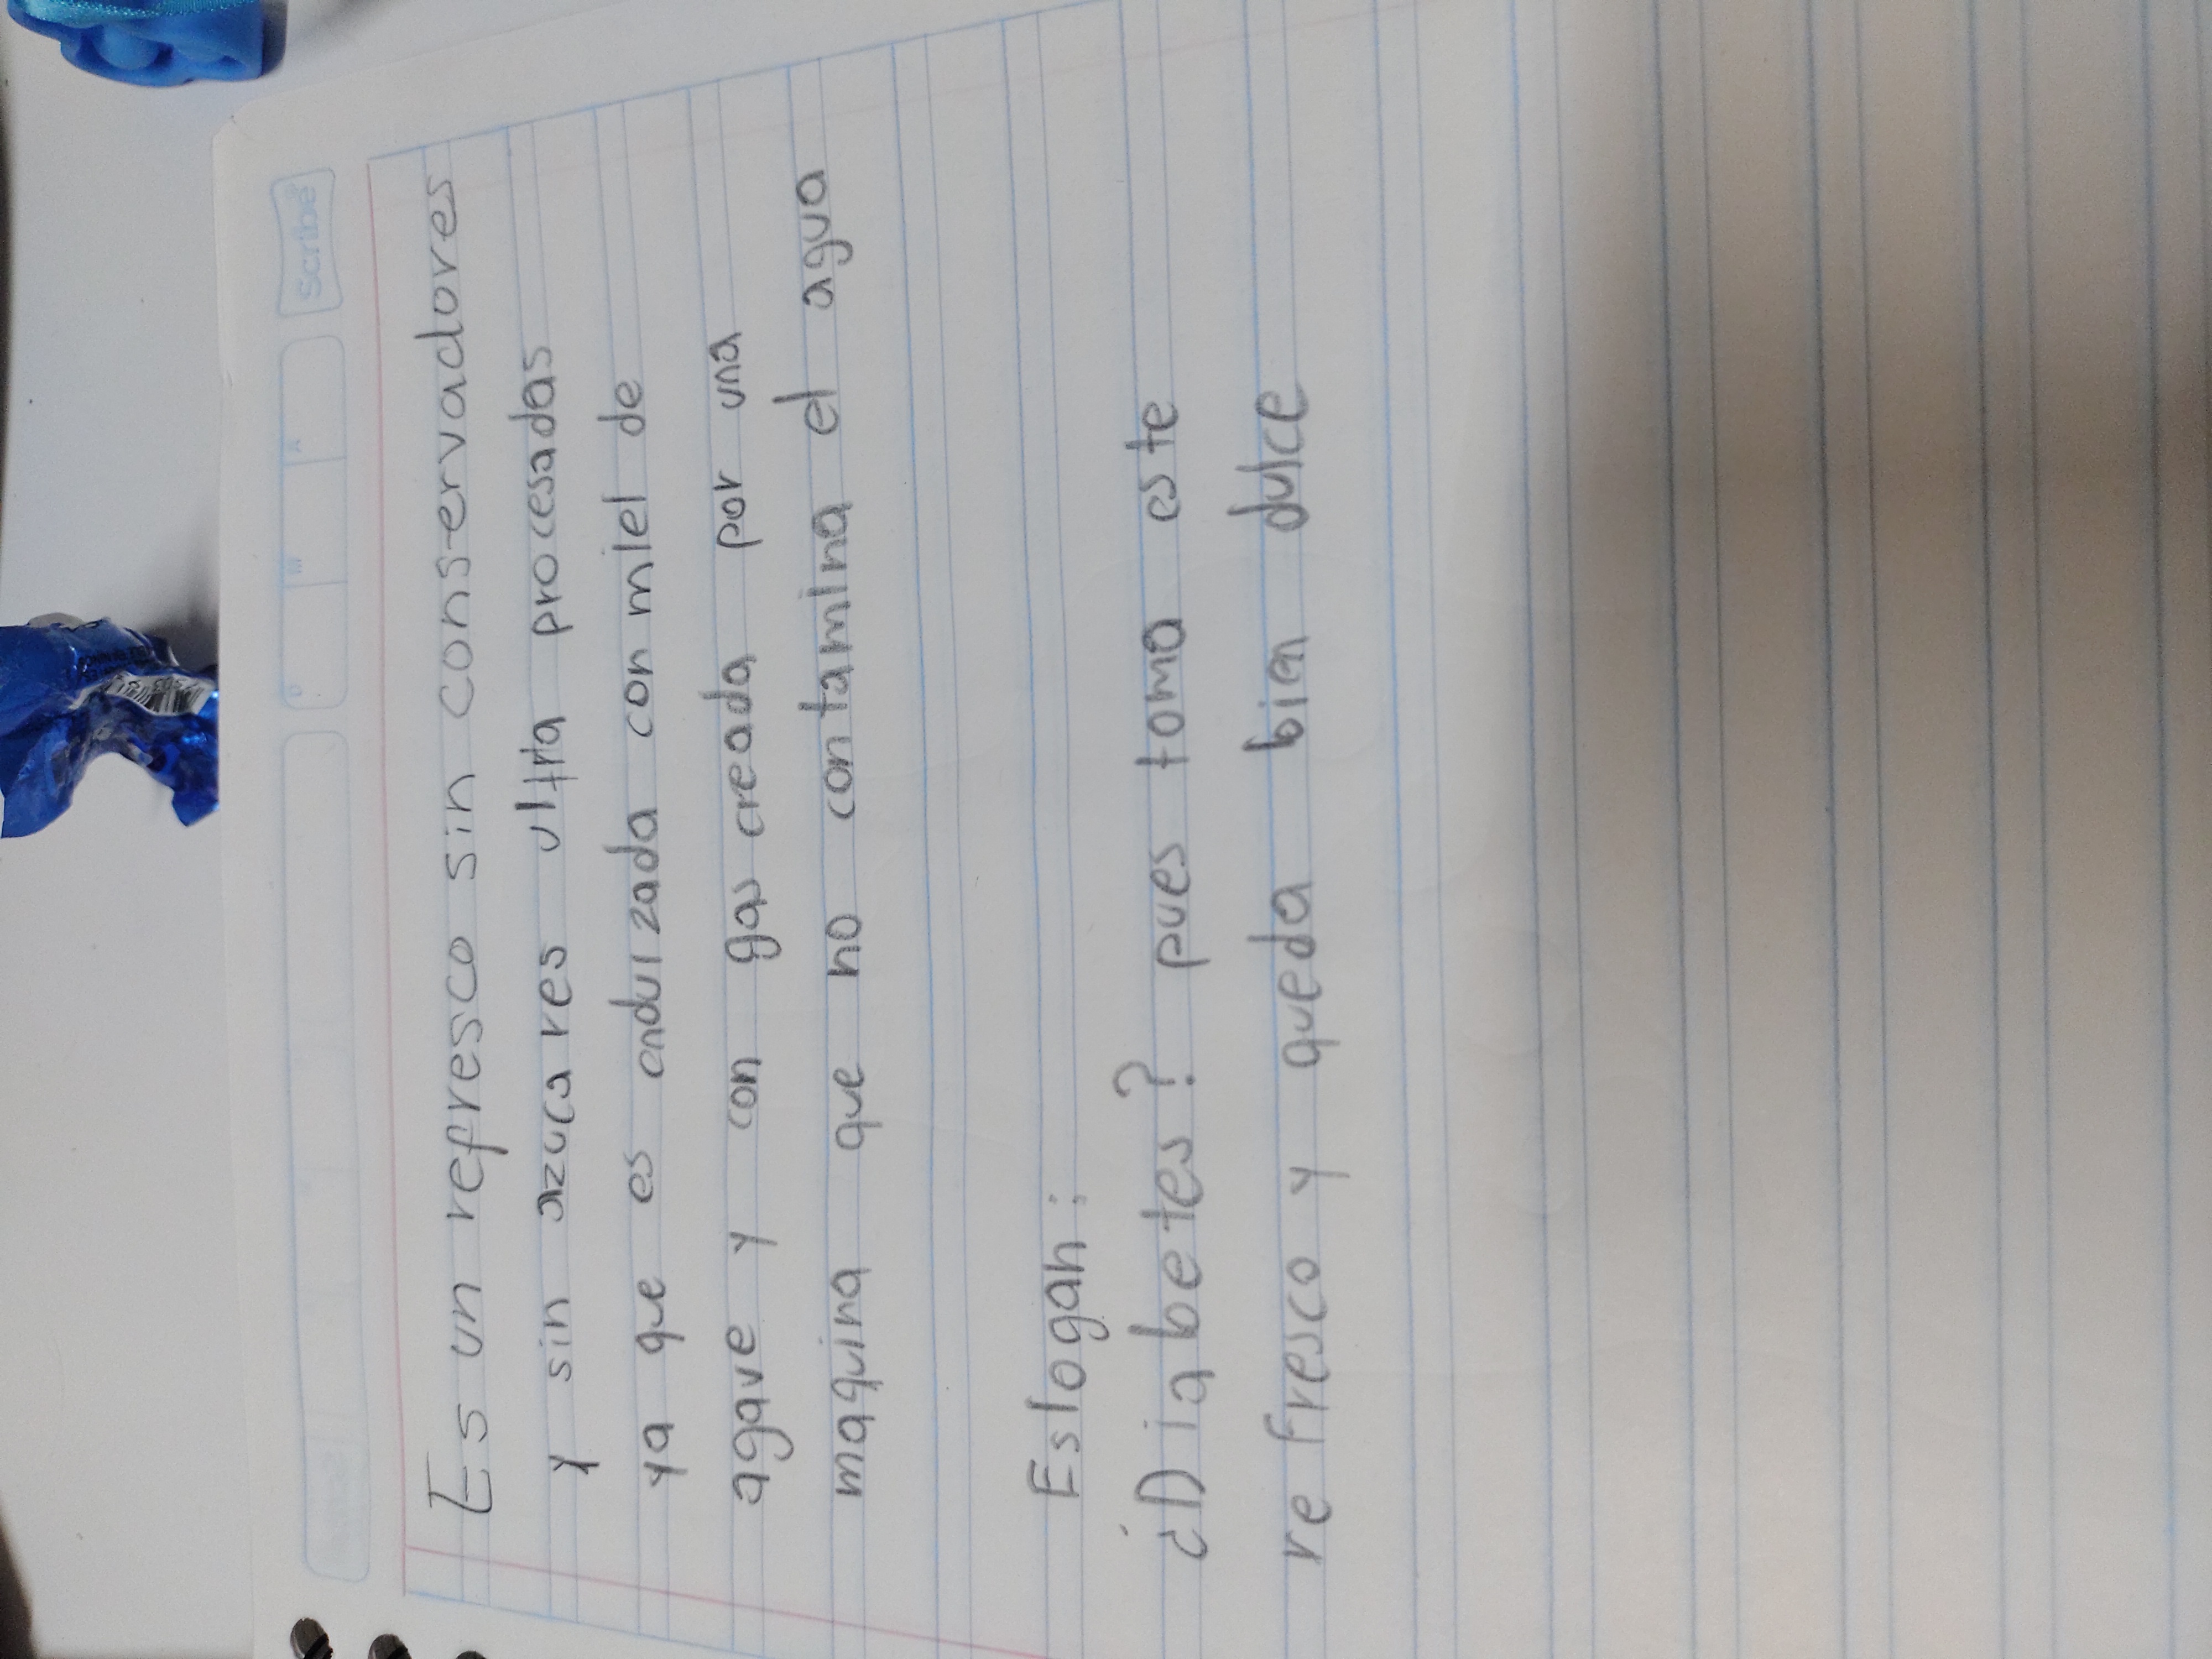 Scribe
D M A
Es un refresco sin conservadores
y sin azucares ultra procesadas
ya que es endulzada con miel de
agave y con gas creada por una
maquina que no contamina el agua
Eslogan:
¿Diabetes? pues toma este
refresco y queda bien dulce